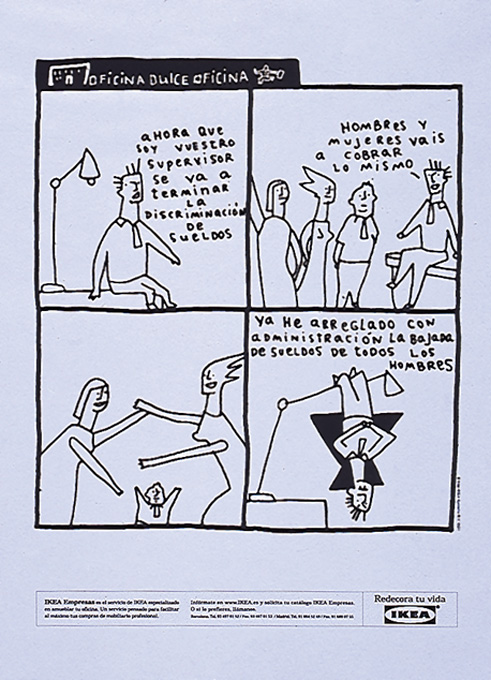 OFICINA DULCE OFICINA
AHORA QUE
SOY VUESTRO
SUPERVISOR
SE VA A
TERMINAR
LA
DISCRIMINACIÓN
DE
SUELDOS
HOMBRES Y
MUJERES VAIS
A COBRAR
LO MISMO
YA HE ARREGLADO CON
ADMINISTRACIÓN LA BAJADA
DE SUELDOS DE TODOS LOS
HOMBRES
IKEA Empresas es el servicio de IKEA especializado
en amueblar tu oficina. Un servicio pensado para facilitar
al máximo tus compras de mobiliario profesional.
Infórmate en www.IKEA.es y solicita tu catálogo IKEA Empresas.
O si lo prefieres, llámanos.
Redecora tu vida
IKEA